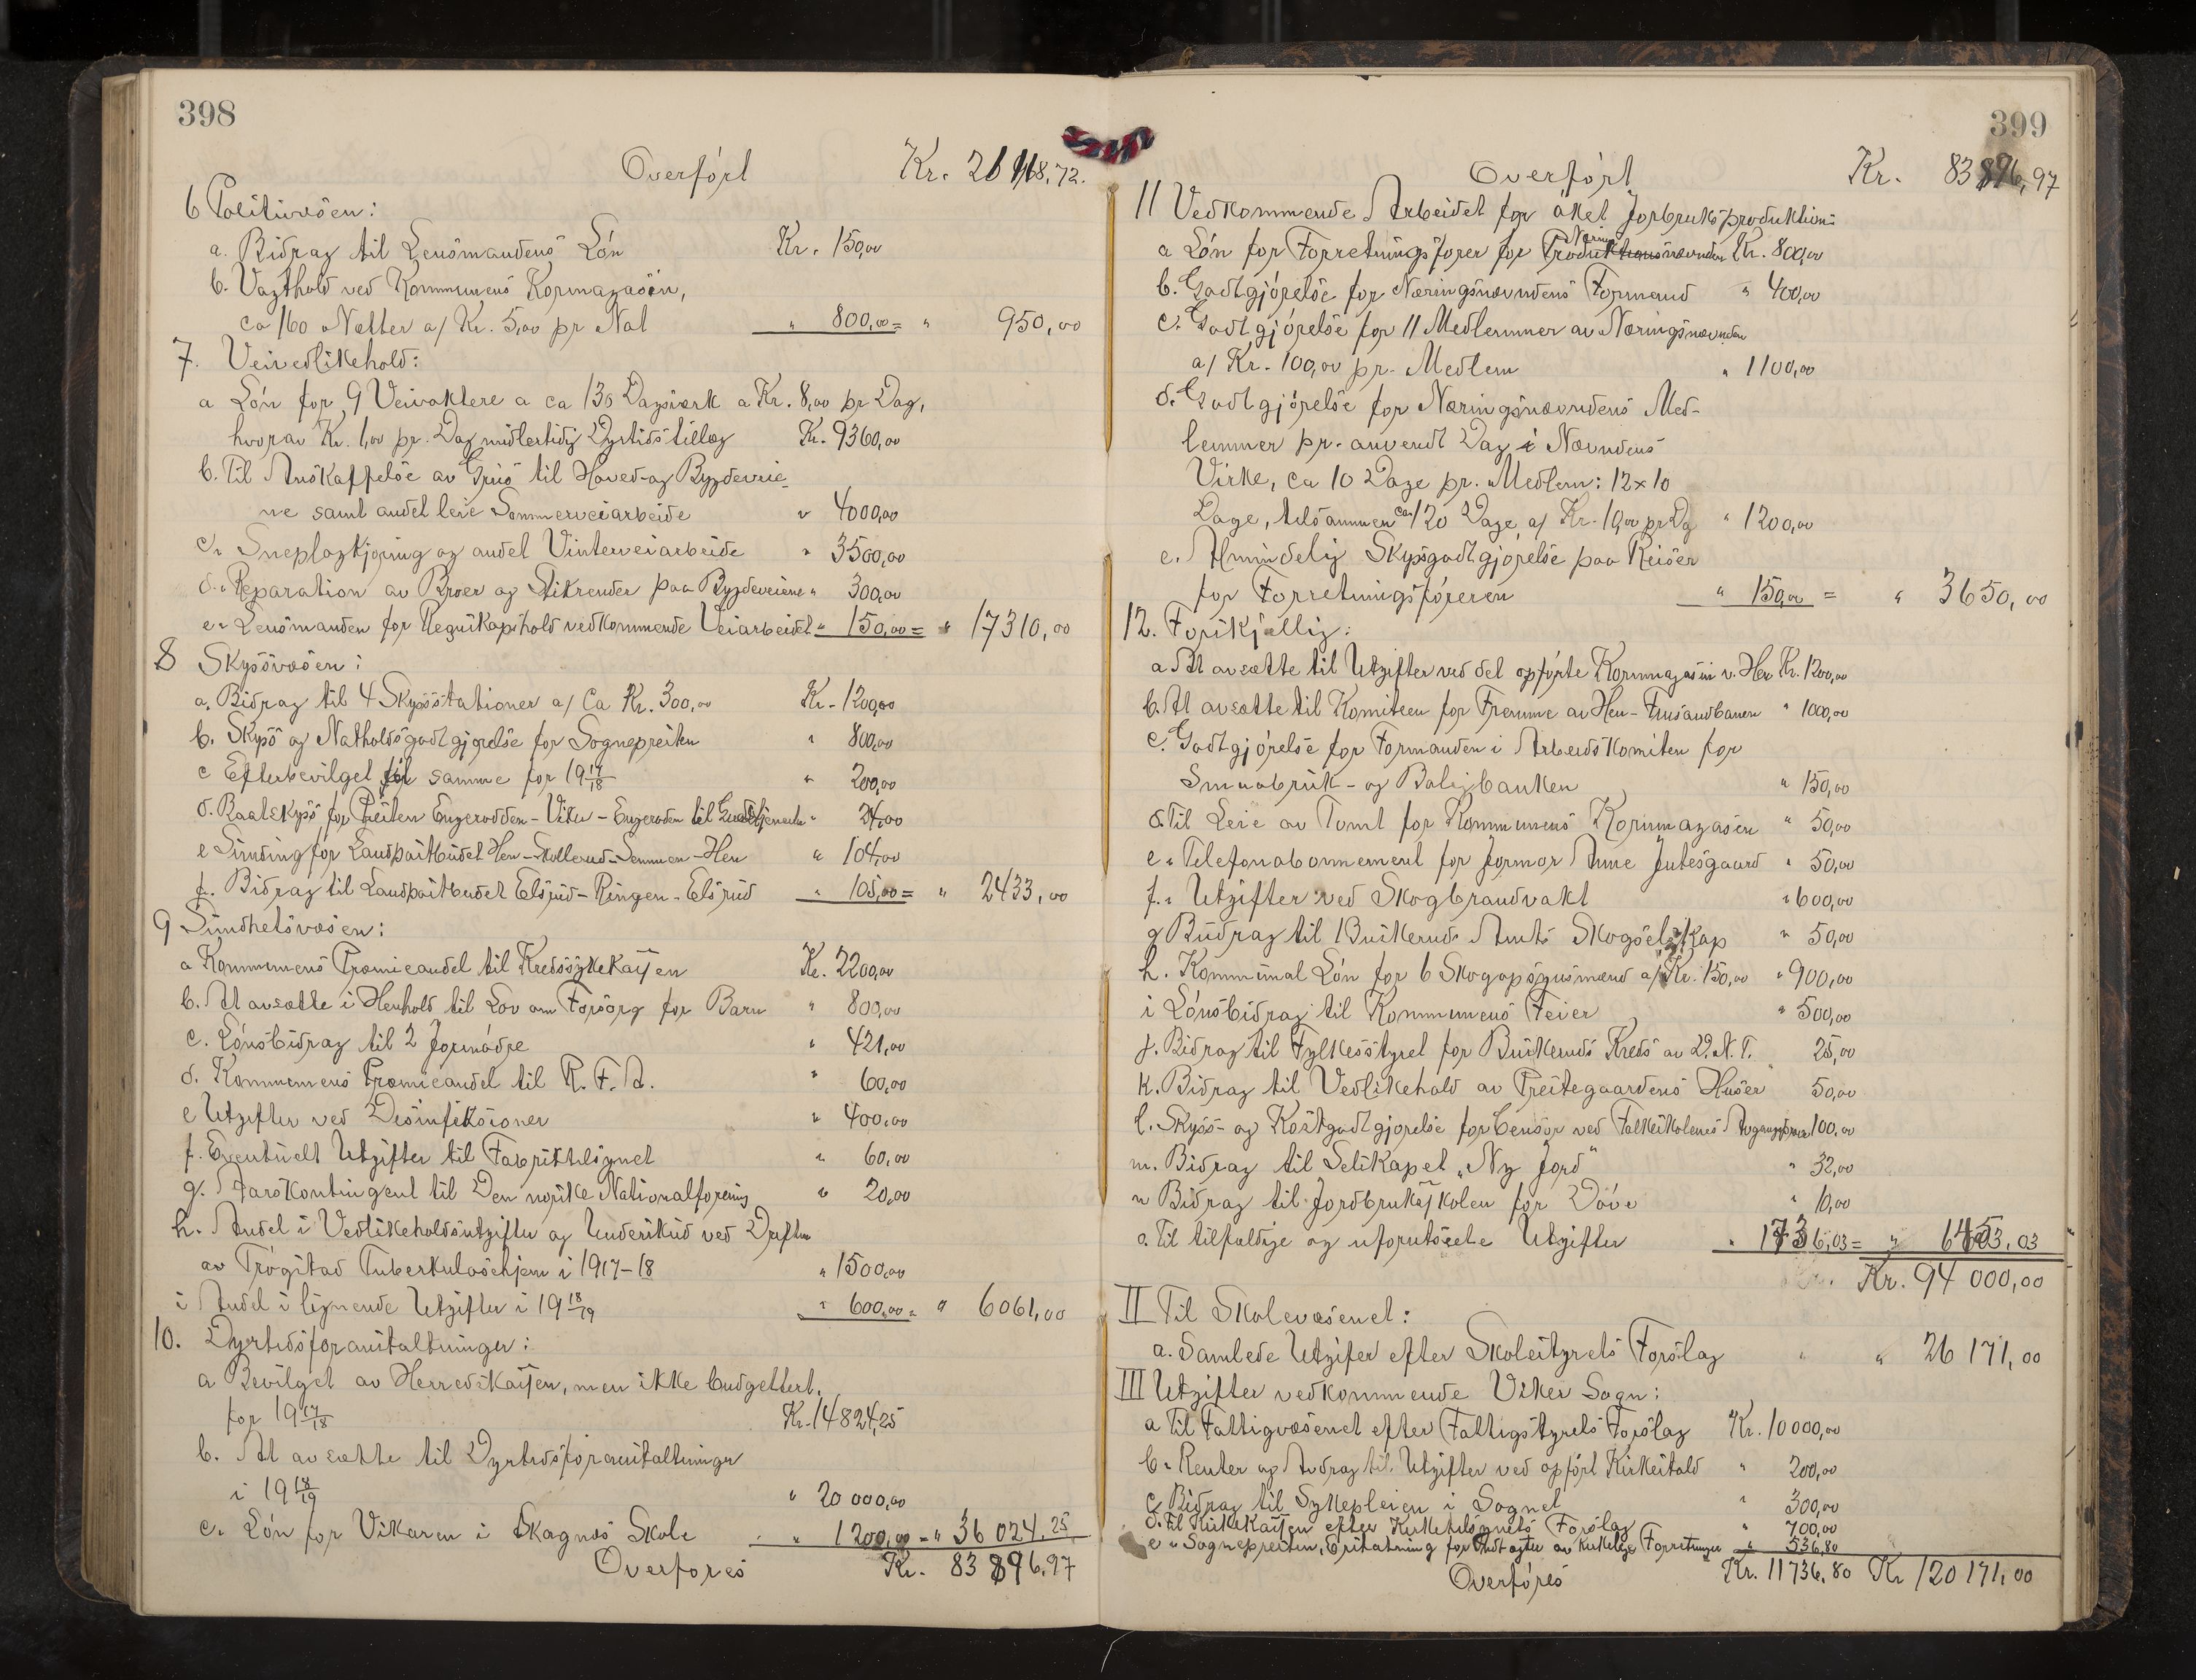 398
Overført Kr. 21118,72.
6 Politivæsen:
a. Bidrag til Lensmandens Løn Kr. 150,00
b. Vagthold ved Kommunens Kornmagasin,
ca 160 Nætter a/ Kr. 5,00 pr Nat " 800,00 = " 950,00
7. Veivedlikehold:
a Løn for 9 Veivoktere a ca 130 Dagsverk a Kr. 8,00 pr Dag,
hvorav Kr. 1,00 pr. Dag midlertidig Dyrtidstillæg Kr. 9360,00
b. Til Anskaffelse av Grus til Hoved- og Bygdeveie-
ne samt andet leie Sommerveiarbeide " 4000,00
c. Sneplogkjøring og andet Vinterveiarbeide " 3500,00
d. Reparation av Broer og Stikrender paa Bygdeveiene " 300,00
e. Lensmanden for Regnskapshold vedkommende Veiarbeidet " 150,00 = " 17310,00
8 Skyssvæsen:
a. Bidrag til 4 Skysstationer a/ Ca Kr. 300,00 Kr. 1200,00
b. Skyss og Natholdsgodtgjørelse for Sognepresten " 800,00
c Efterbevilget til samme for 19 17/18 " 200,00
d. Baatskyss for Presten Engerodden - Viker - Engerodden til Gudstjeneste " 24,00
e Sending for Landpostbudet Hen - Skollerud - Semmen - Hen " 104,00
f. Bidrag til Landpostbudet Elsrud - Ringen - Elsrud " 105,00 = " 2433,00
9 Sundhetsvæsen:
a Kommunens Præmieandel til Kredssykekassen Kr. 2200,00
b. At avsætte i Henhold til Lov om Forsorg for Barn " 800,00
c. Lønsbidrag til 2 Jormødre " 421,00
d. Kommunens Præmieandel til R. F. A. " 60,00
e Utgifter ved Desinfeksioner " 400,00
f. Eventuelt Utgifter til Fabriktilsynet " 60,00
g. Aarskontingent til Den norske Nationalforening " 20,00
h. Andel i Vedlikeholdsutgifter og Underskud ved Driften
av Trøgstad Tuberkulosehjem i 1917-18 " 1500,00
i Andel i lignende Utgifter i 19 18/19 " 600,00 = " 6061,00
10. Dyrtidsforanstaltninger:
a Bevilget av Herredskassen, men ikke budgettert,
for 19 17/18 Kr. 14824,25
b. At avsætte til Dyrtidsforanstaltninger
i 19 18/19 " 20 000,00
c. Løn for Vikaren i Skagnes Skole " 1200,00 = " 36 024,25
Overføres Kr. 83 896,97
399
Overført Kr. 83896,97
11 Vedkommende Arbeidet for øket Jorbruksproduktion:
a Løn for Forretningsfører for Produktionsnævnden Nærings Kr. 800,00
b. Godtgjørelse for Næringsnævndens Formand " 400,00
c. Godtgjørelse for 11 Medlemmer av Næringsnævnden
a/ Kr. 100,00 pr. Medlem " 1100,00
d. Godtgjørelse for Næringsnævndens Med-
lemmer pr. anvendt Dag i Nævndens
Virke, ca 10 Dage pr. Medlem: 12 x 10
Dage, tilsammen ca 120 Dage a/ Kr. 10,00 pr Dg " 1200,00
e. Almindelig Skyssgodtgjørelse paa Reiser
for Forretningsføreren " 150,00 = " 3650,00
12. Forskjellig:
a At avsætte til Utgifter ved det opførte Kornmagasin v. Hen Kr. 1200,00
b. At avsætte til Komiteen for Fremme av Hen - Trusandbanen " 1000,00
c. Godtgjørelse for Formanden i Arbeidskomiten for
Smaabruk- og Boligbanken " 150,00
d. Til Leie av Tomt for Kommunens Kornmagasen " 50,00
e. Telefonabonnement for Jormor Anne Jutesgaard " 50,00
f. Utgifter ved Skogbrandvakt " 600,00
g Budrag til Buskeruds Amts Skogselskap " 50,00
h. Kommunal Løn for 6 Skogopsynsmænd a/ Kr. 150,00 " 900,00
i Lønsbidrag til Kommunens Feier " 500,00
j. Bidrag til Fylkesstyret for Buskeruds Kreds av D. N. T. 25,00
k. Bidrag til Vedlikehold av Prestegaardens Huser 50,00
l. Skyss- og Kostgodtgjørelse for Censor ved Folkeskolenes Avgangsprøve 100,00
m. Bidrag til Selskapet "Ny Jord" " 32,00
n Bidrag til Jordbruksskolen for Døve " 10,00
o. Til tilfældige og uforutseete Utgifter " 1736,03 = " 6453,03
Kr. 94 000,00
II Til Skolevæsenet:
a. Samlede Utgifer efter Skolestyrets Forslag " " 26 171,00
III Utgifter vedkommende Viker Sogn:
a Til Fattigvæsenet efter Fattigstyrets Forslag Kr. 10 000,00
b. Renter og Avdrag til Utgifter ved opført Kirkestald " 200,00
c. Bidrag til Sykepleien i Sognet " 300,00
d. Til Kirkekassen efter Kirketilsynets Forslag " 700,00
e " Sognepresten, Erstatning for Indtægter av kirkelige Forretninger " 536,80
Overføres Kr. 11736,80 Kr 120 171,00